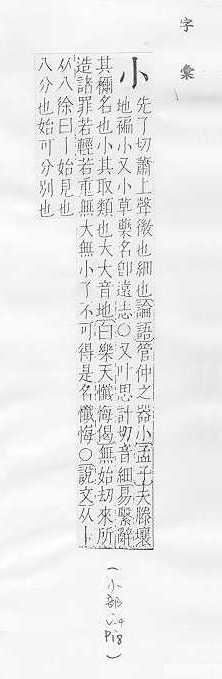 字彙
小 先了切蕭上聲微也細也論語管仲之器小孟子夫滕壤
地褊小又小草藥名卽遠志○又叶思計切音細易繫辭
其稱名也小其取類也大大音地白樂天懺悔偈無始劫來所
造諸罪若輕若重無大無小了不可得是名懺悔○說文从丨
从八徐曰丨始見也
八分也始可分別也
(小部
P18)